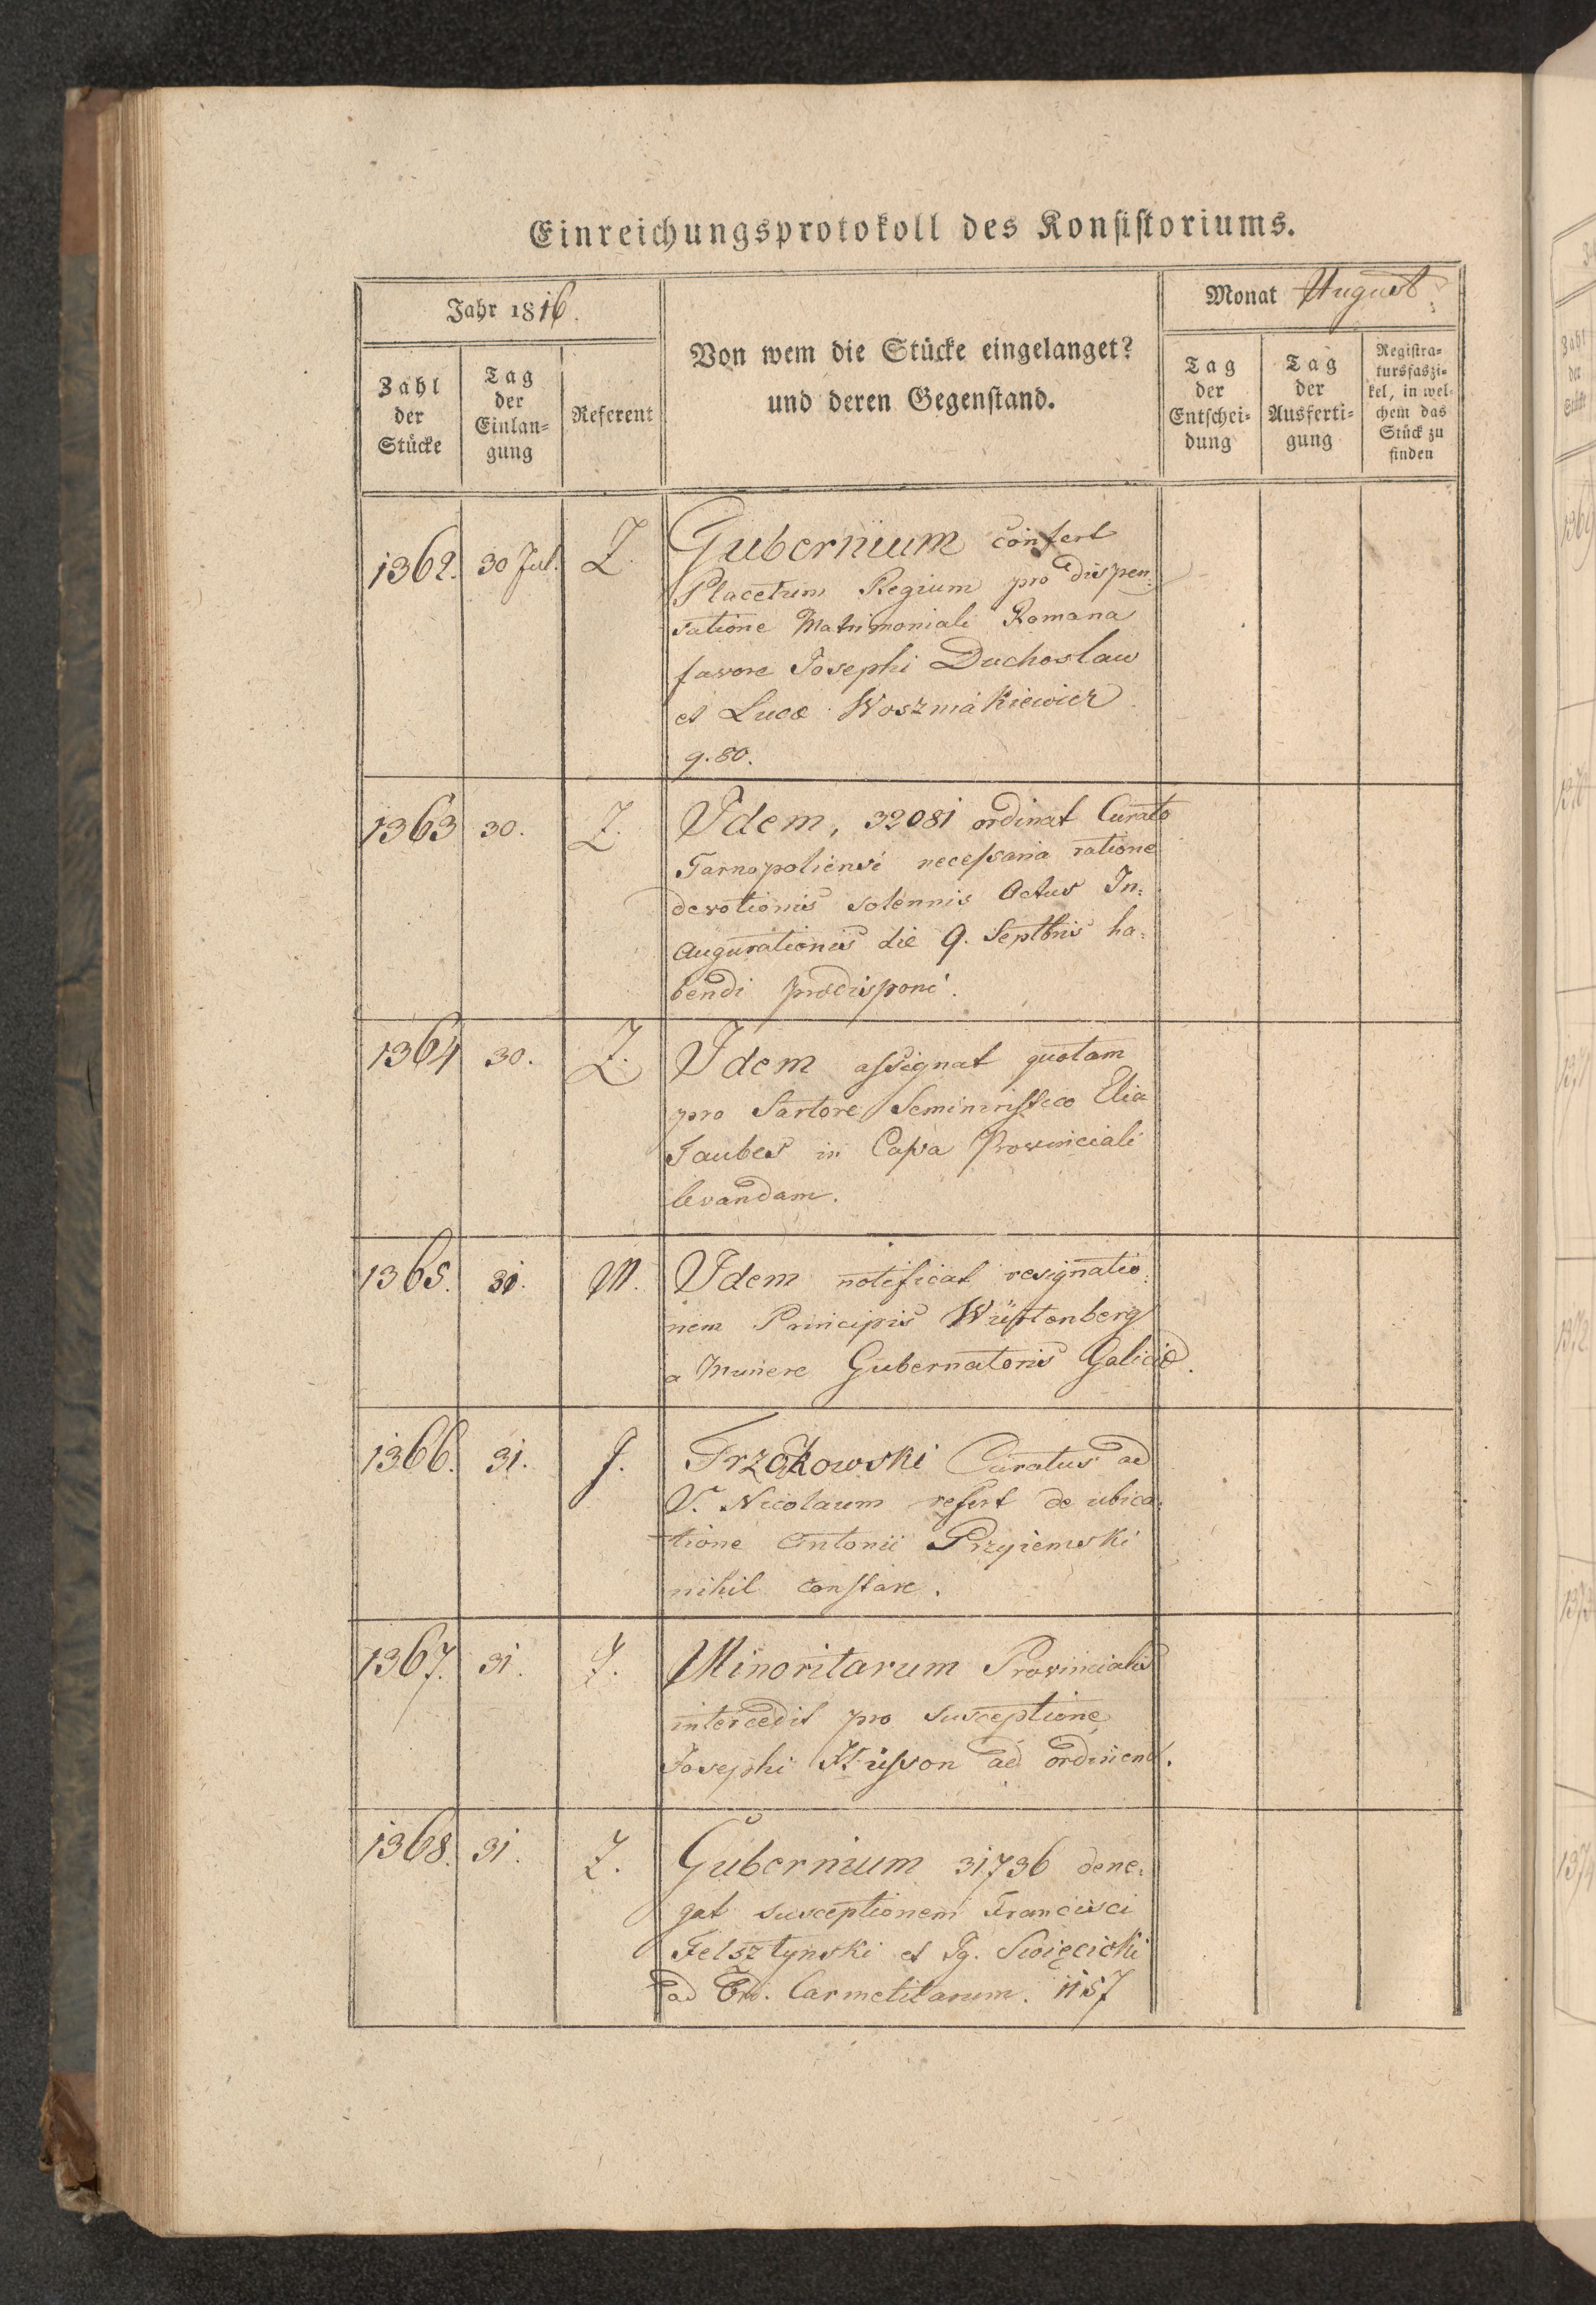 Einreichungsprotokoll des Konsistoriums.
Jahr 1816.
Von wem die Stücke eingelanget?
und deren Gegenstand.
Monat August
Zahl
der
Stücke
Tag
der
Einlan=
gung
Referent
Tag
der
Entschei=
dung
Tag
der
Ausferti=
gung
Registra=
tursfaszi=
kel, in wel=
chem das
Stück zu
finden
1362. 30 Jul. Z. Gubernium confert
Placetum Regium pro dispen:
satione Matrimoniali Romana
favore Josephi Duchoslaw
et Lucæ Woszmakiewicz
g. 80.
1363 30. Z. Idem, 32081 ordinat Curato
Tarnopoliensi necessaria ratione
devotionis solennis Actus In:
augurationis die 9. Septbris ha:
bendi prædisponi.
1364 30. Z. Idem assignat quotam
pro Sartore Elia
Taubes in Cassa Provinciali
levandam.
1365. 31. M. Idem notificat resignatio:
nem Principis Würtenberg
a Munere Gubernatoris Galiciæ.
1366. 31. J. Curatus ad
S. Nicolaum refert de ubica:
tione Antonii Przyiemski
nihil constare.
1367. 31. Z. Minoritarum Provincialis
intercedit pro susceptione
Josephi ad ordinem.
1368. 31. Z. Gubernium 31736 dene:
gat susceptionem Francisci
Felsztynski et Ig. Swięcicki
ad Ord. Carmelitarum. 1157